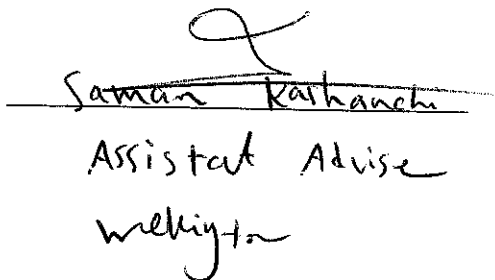 Saman Kashanchi
Assistat Advise
Wellington